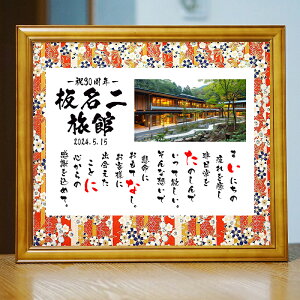 ー祝30周年ー
板名二
旅館
2024.5.15
まいにちの
疲れを癒し
非日常を
たのしんで
いって欲しい。
そんな想いで
懸命に
おもてなし。
お客様に
出会えた
ことに
心からの
感謝を込めて。